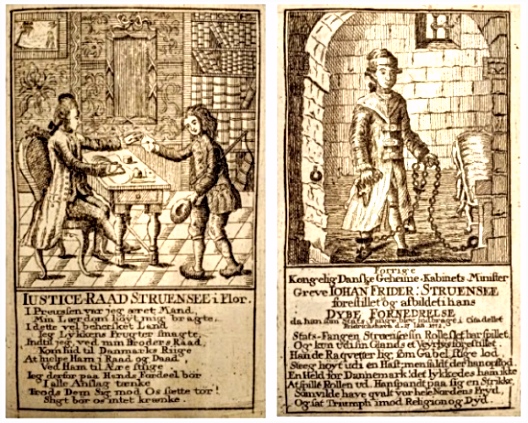 IUSTICE-RAAD STRUENSEE i Flor.
I Preussen var jeg æret Mand,
Min Lærdom høyt mig bragte,
I dette vel behersket Land
Jeg Lykkens Frugter smagte,
Indtil jeg ved min Broders Raad,
Kom hid til Danmarks Rige
At hielpe Ham i Raad og Daad
Ved Ham til Ære stige
Jeg derfor paa Hands Fordeel bør
I alle Anslag tænke
Trods Dem Sig mod Os sætte tør!
Sligt bør os intet krænke.
Forrige
Kongelig Danske Geheime-Kabinets-Minister
Greve IOHAN FRIDER: STRUENSEE
forestillet og afbildet i hans
DYBE FORNEDRELSE
da han som Stats
Citadellet
Friderichshavn d. 17 Jan 1772.
Stats-Fangen Struensee sin Rolle slet har spillet,
Og kun ud sin Lands
Hand e Raqvetter lig, som Gabel stige lod
Steeg høyt ud i en Hast; men faldt der han opstod.
En Held for Dannemark! det lykkedes ham ikke
At spille Rollen ud. Hans pandt paa sig en Strikke,
Som vilde have qvalt vor heele Nordens Fryd,
Og sat Triumph imod Religion og Dyd.